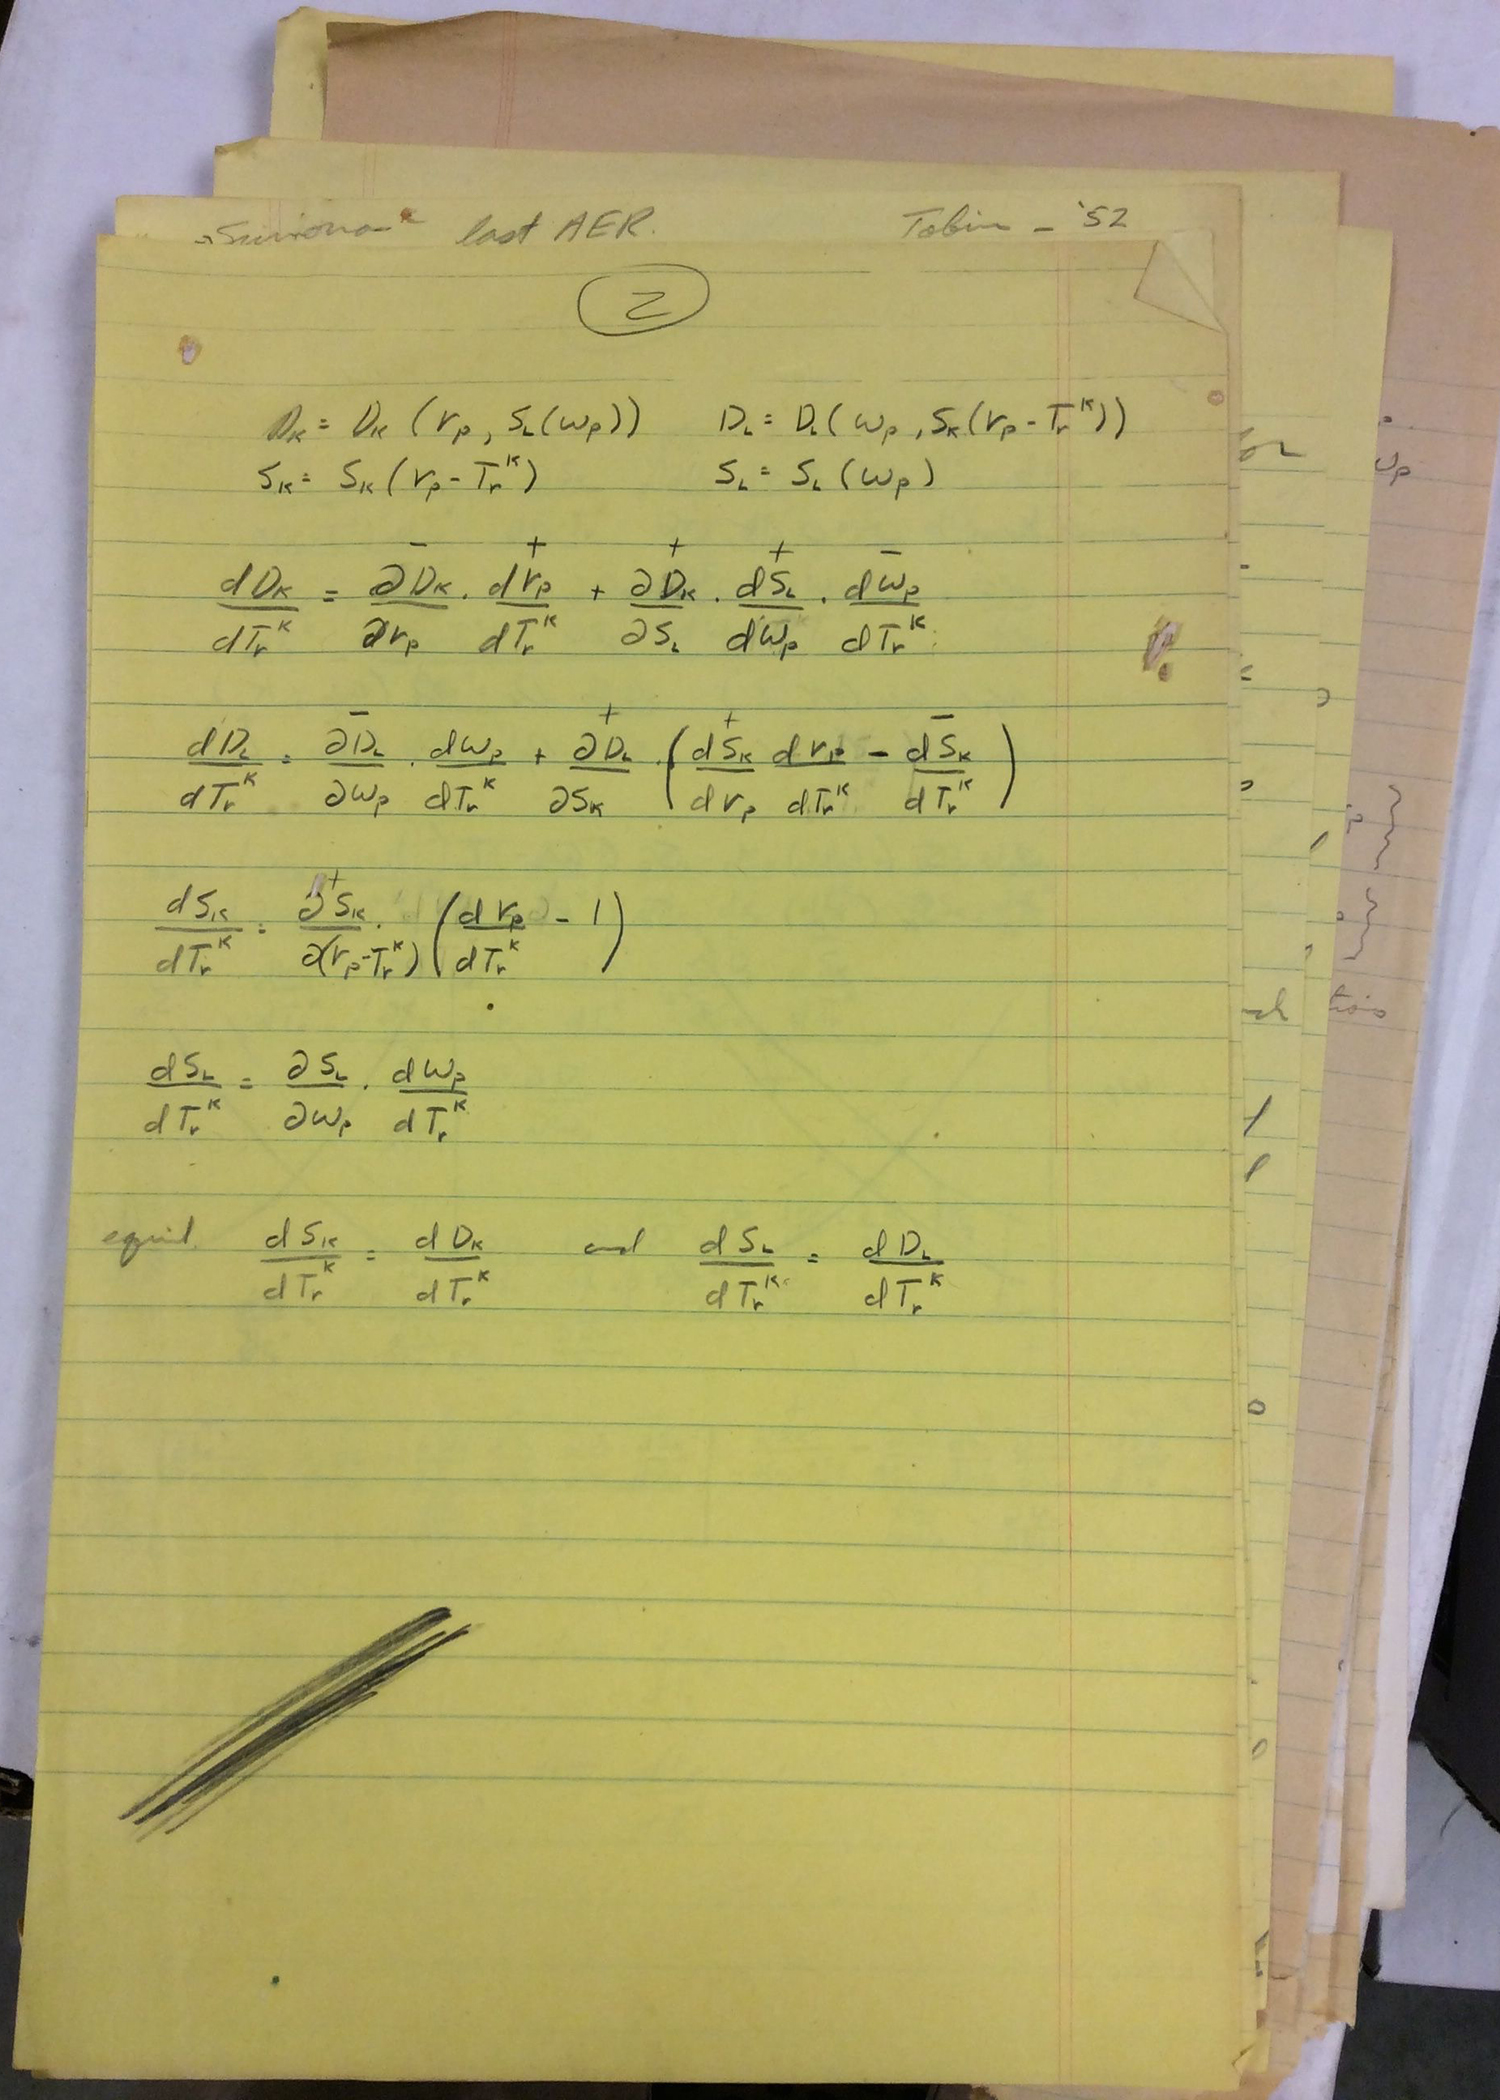 last AER. Tobin - '52
2
D_K = D_K (r_p, S_L(w_p)) D_L = D_L(w_p, S_K(r_p - T_r^K))
S_K = S_K (r_p - T_r^K) S_L = S_L (w_p)
- + + + -
dD_K/dT_r^K = ∂D_K/∂r_p · dr_p/dT_r^K + ∂D_K/∂S_L · dS_L/dw_p · dw_p/dT_r^K
- + + -
dD_L/dT_r^K = ∂D_L/∂w_p · dw_p/dT_r^K + ∂D_L/∂S_K · (dS_K/dr_p dr_p/dT_r^K - dS_K/dT_r^K)
+
dS_K/dT_r^K = ∂S_K/∂(r_p - T_r^K) · (dr_p/dT_r^K - 1)
dS_L/dT_r^K = ∂S_L/∂w_p · dw_p/dT_r^K
equil. dS_K/dT_r^K = dD_K/dT_r^K and dS_L/dT_r^K = dD_L/dT_r^K